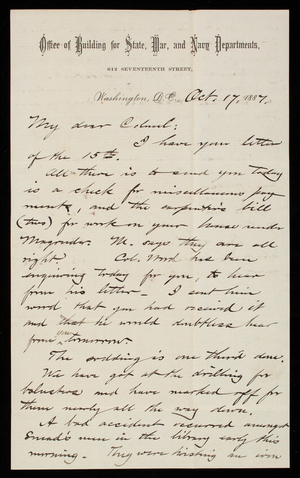 Office of Building for State, War, and Navy Departments,
612 SEVENTEENTH STREET,
Washington, D.C., Oct. 17, 1887.
My dear Colonel:
I have your letter
of the 15th.
All there is to send you today
is a check for miscellaneous pay
ments, and the carpenters bill
(two) for work on your house under
Magruder. M. says they are all
right. Col. has been
enquiring today for you, to hear
from his letter – I sent him
word that you had received it
and that he would doubtless hear
from you tomorrow.
The sodding is one third done.
We have got at the drilling for
balusters and have marked off for
them nearly all the way down.
A bad accident occurred amongst
men in the library early this
morning. They were hoisting an iron